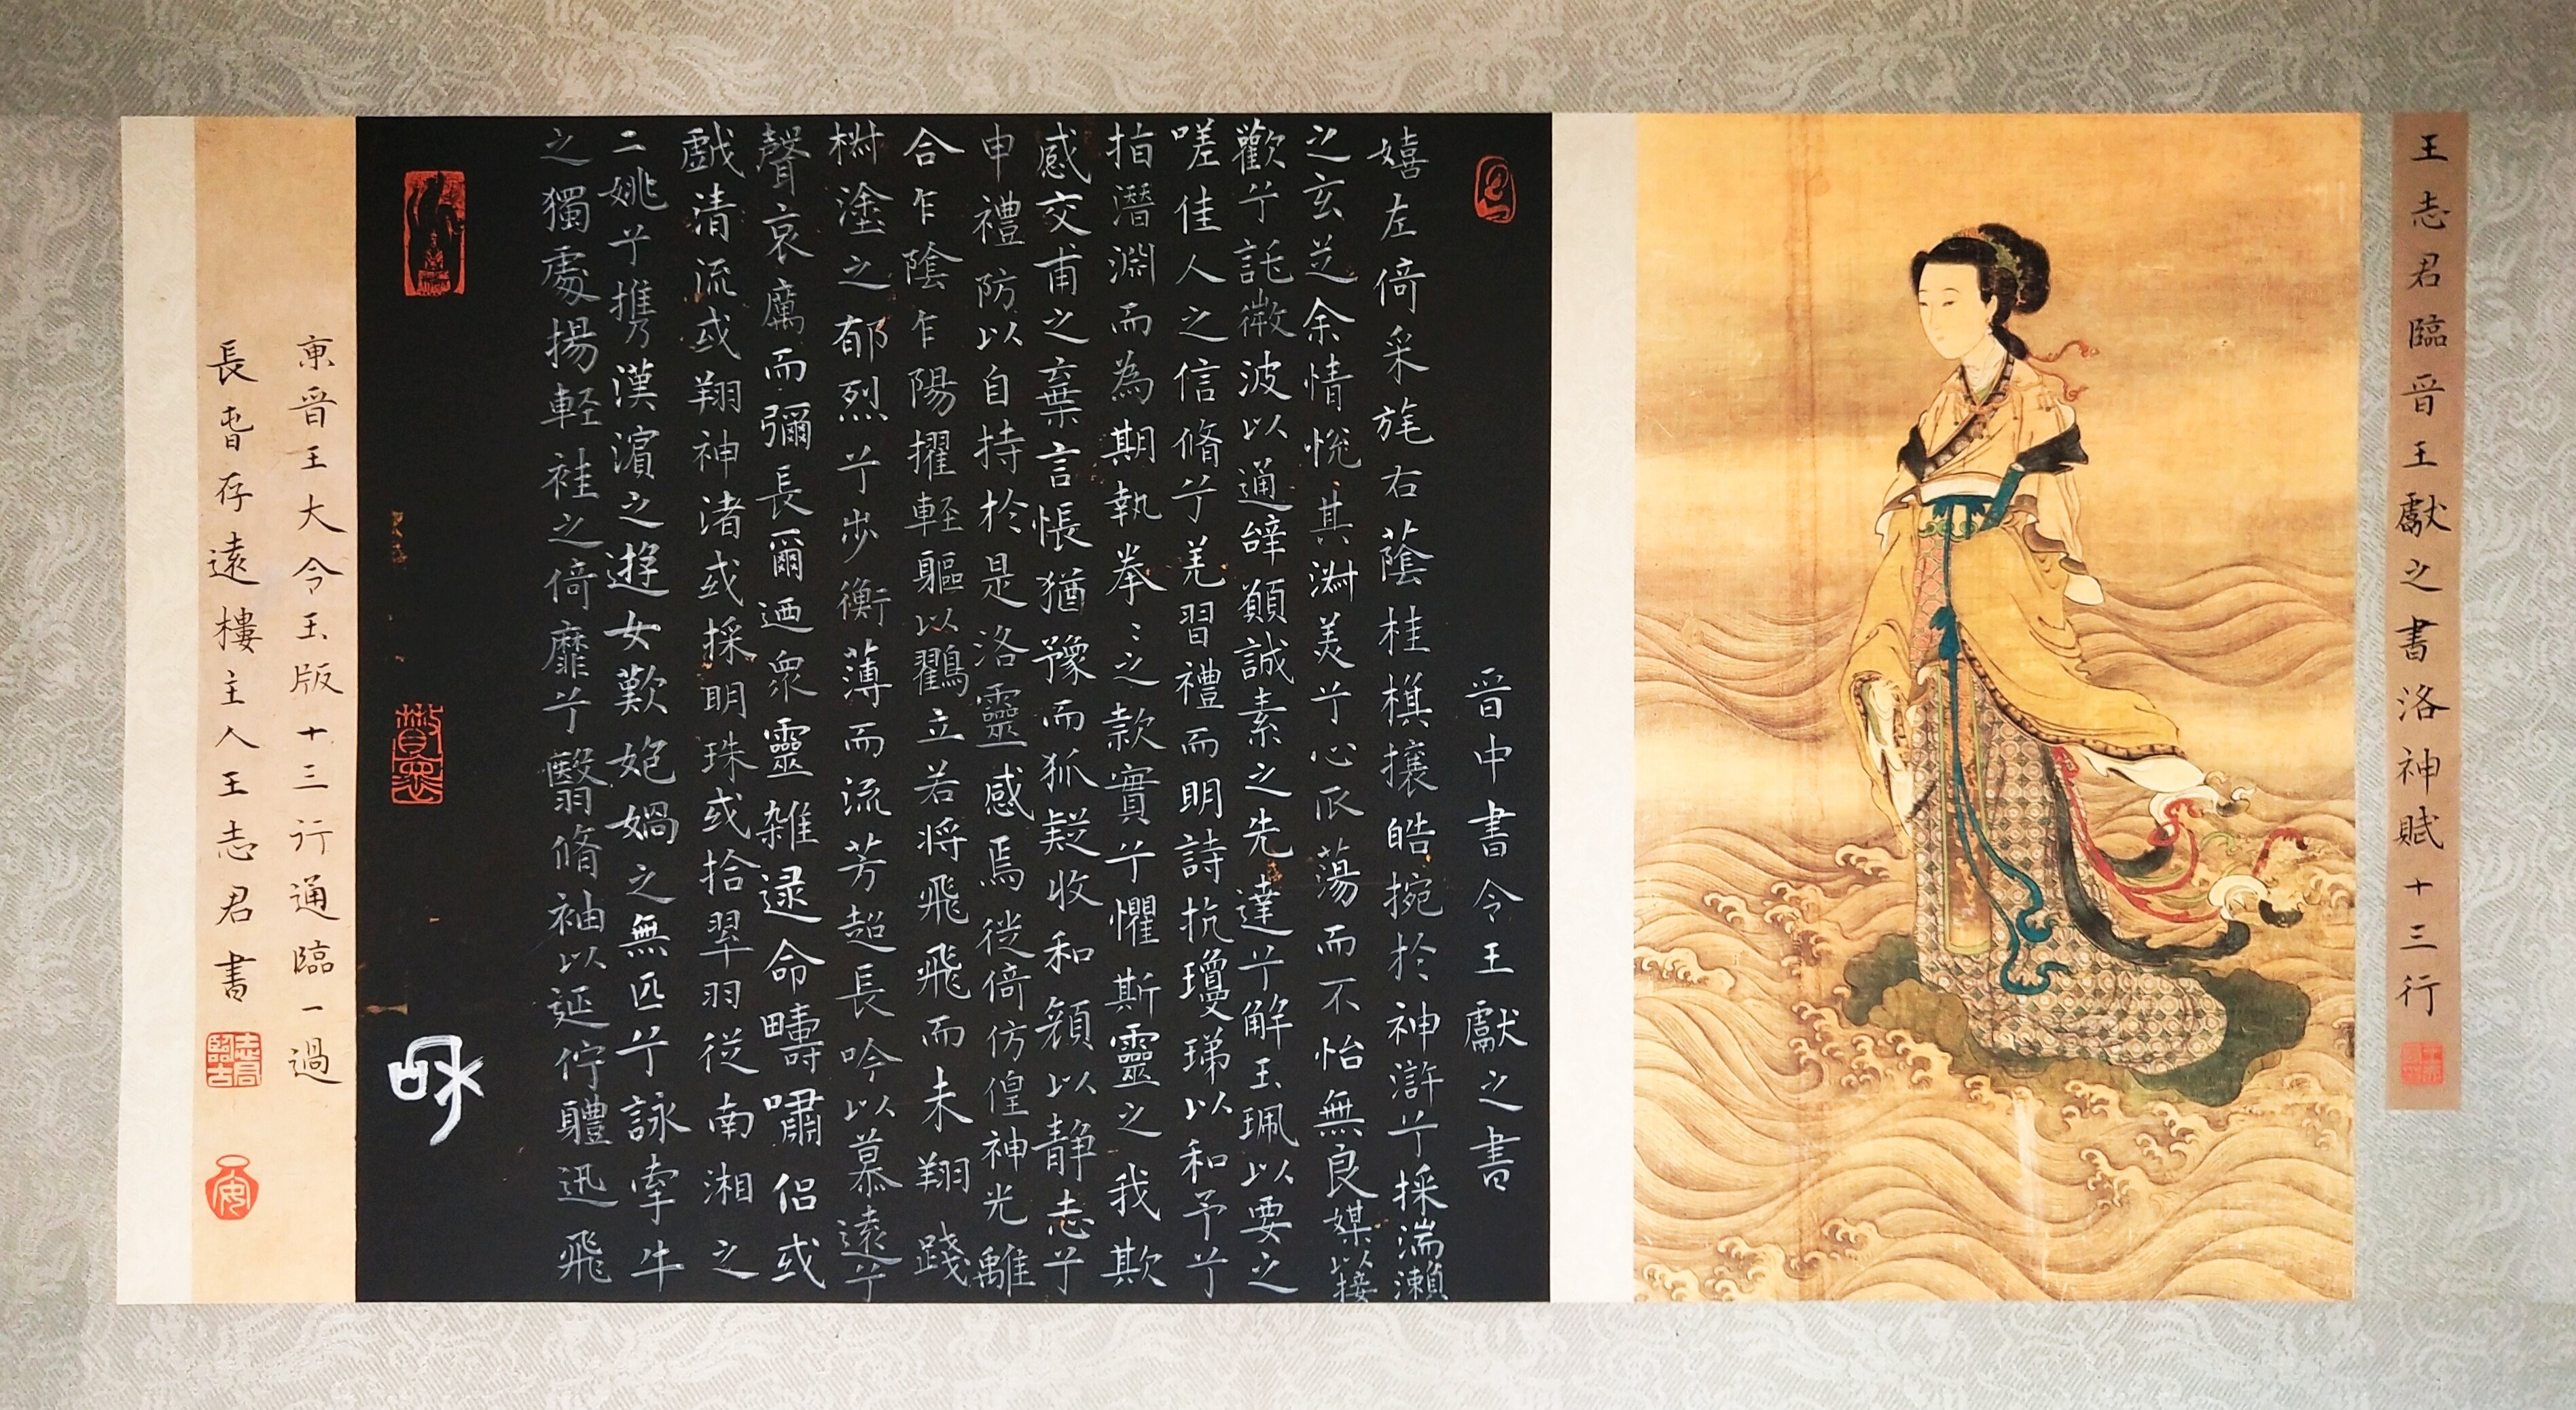 王志君臨晉王獻之書洛神賦十三行
晉中書令王獻之書
嬉左倚采旄右蔭桂棋攘皓捥於神滸兮採湍瀨
之玄芝余情悅其淑美兮心㕟蕩而不怡無良媒以接
歡兮託微波以通辭願誠素之先達兮解玉珮以要之
嗟佳人之信脩兮羌習禮而明詩抗瓊珶以和予兮
指潛淵而為期執拳〻之款實兮懼斯靈之我欺
感交甫之棄言悵猶豫而狐疑收和顏以静志兮
申禮防以自持於是洛靈感焉徙倚仿偟神光離
合乍陰乍陽擢輕軀以鸖立若将飛飛而未翔踐
椒塗之郁烈兮步衡薄而流芳超長吟以慕遠兮
聲哀厲而彌長爾迺衆靈雑逯命疇嘯侣或
戲清流或翔神渚或採明珠或拾翠羽従南湘之
二姚兮攜漢濱之遊女歎㚿媧之無匹兮詠牽牛
之獨處揚輕袿之倚靡兮翳脩袖以延佇軆迅飛
東晉王大令玉版十三行通臨一過
長旹存遠樓主人王志君書
志君臨古